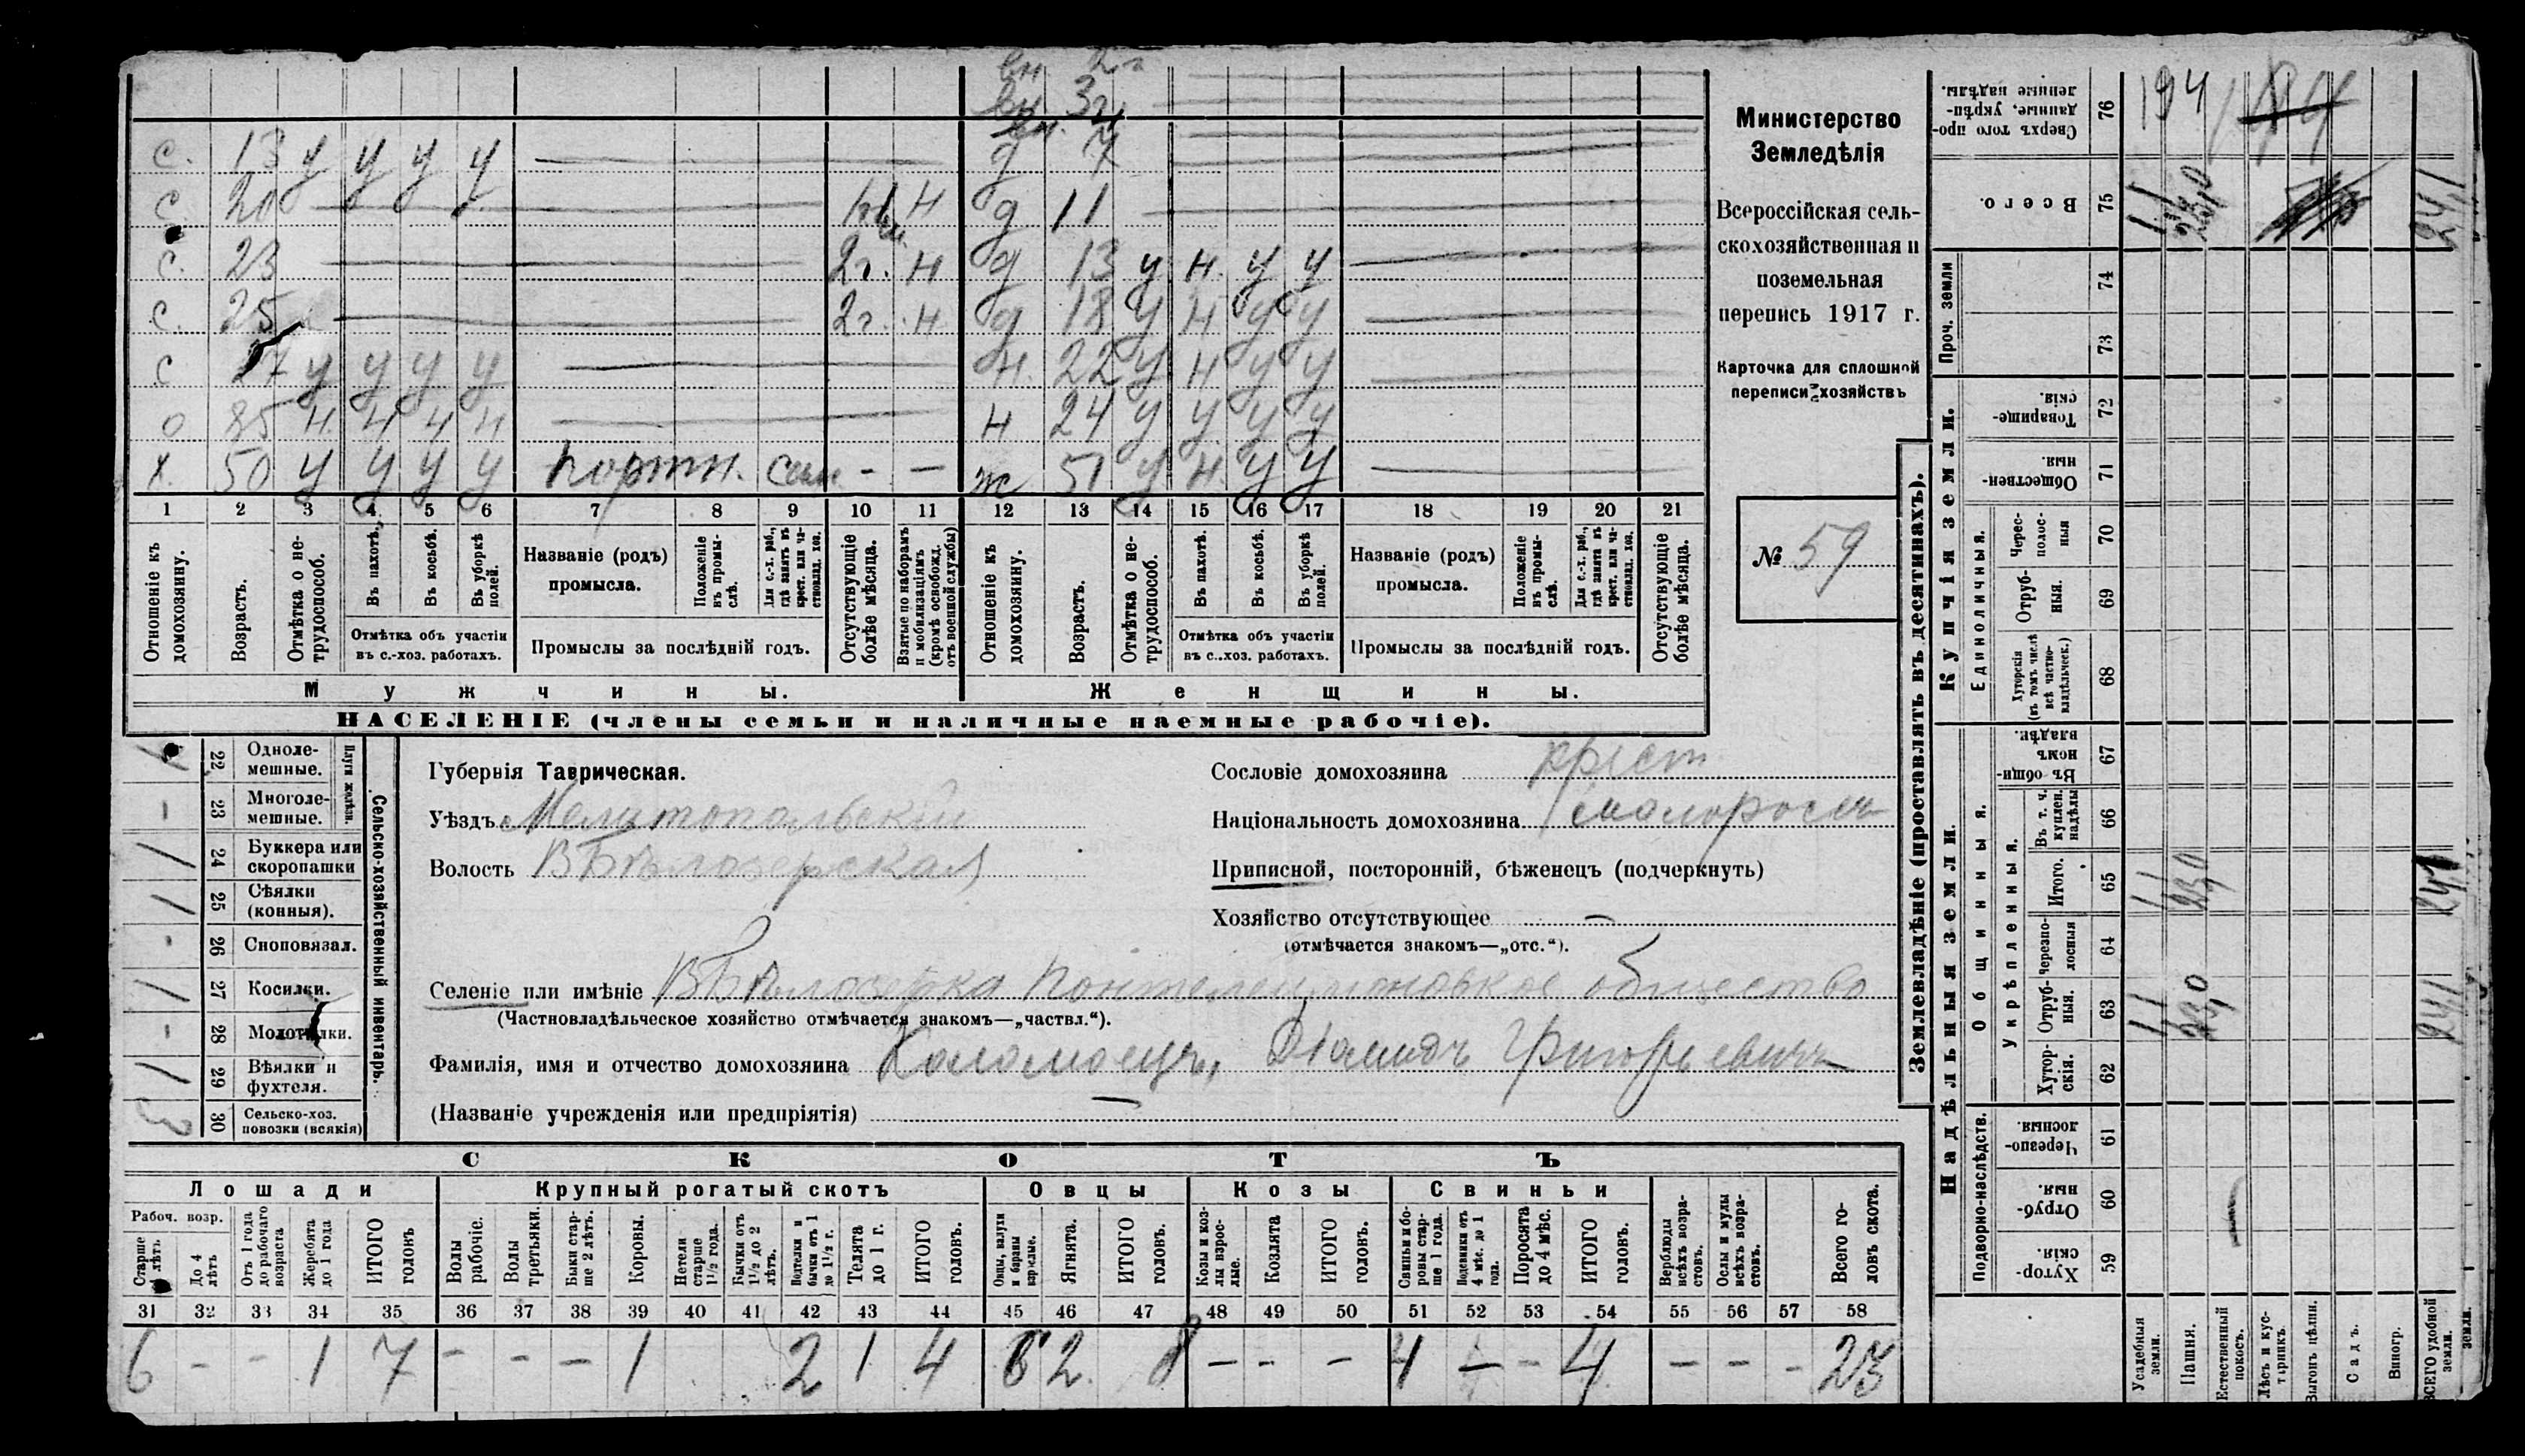 вн. 2г
вн. 3г
вн. 4
с. 13 у у у у д 7
с 20 н д 11
с. 23 2г. н д 13 у н. у у
с. 25 2г. н д 18 у н у у
с 27 у у у у н. 22 у н у у
о 85 н. н н н н 24 у у у у
х. 50 у у у у портн. сам - - ж 51 у н. у у
1 2 3 4 5 6 7 8 9 10 11 12 13 14 15 16 17 18 19 20 21
Отношеніе къ домохозяину.
Возрастъ.
Отмѣтка о не-трудоспособ.
Въ пахотѣ.
Въ косьбѣ.
Въ уборкѣ полей.
Отмѣтка объ участіи
въ с.-хоз. работахъ.
Названіе (родъ)
промысла.
Положеніе въ промы-слѣ.
Для с.-х. раб., гдѣ занятъ въ крест. или ча-стновлад. хоз.
Промыслы за послѣдній годъ.
Отсутствующіе болѣе мѣсяца.
Взятые по наборамъ и мобилизаціямъ (кромѣ освобожд. отъ военной службы)
Отношеніе къ домохозяину.
Возрастъ.
Отмѣтка о не-трудоспособ.
Въ пахотѣ.
Въ косьбѣ.
Въ уборкѣ полей.
Отмѣтка объ участіи
въ с..хоз. работахъ.
Названіе (родъ)
промысла.
Положеніе въ промы-слѣ.
Для с.-х. раб., гдѣ занята въ крест. или ча-стновлад. хоз.
Промыслы за послѣдній годъ.
Отсутствующіе болѣе мѣсяца.
Мужчины. Женщины.
НАСЕЛЕНІЕ (члены семьи и наличные наемные рабочіе).
Министерство
Земледѣлія
Всероссійская сель-
скохозяйственная и
поземельная
перепись 1917 г.
Карточка для сплошной
переписи хозяйствъ
№ 59
Сельско-хозяйственный инвентарь.
Плуги желѣзн.
1 22 Одноле-мешные.
- 23 Многоле-мешные.
1 24 Буккера или скоропашки
1 25 Сѣялки (конныя).
- 26 Сноповязал.
1 27 Косилки.
- 28 Молотилки.
1 29 Вѣялки и фухтеля.
3 30 Сельско-хоз. повозки (всякія)
Губернія Таврическая.
Уѣздъ Мелитопольскій
Волость ВБѣлозерская
Сословіе домохозяина крест
Національность домохозяина малороссъ
Приписной, посторонній, бѣженецъ (подчеркнуть)
Хозяйство отсутствующее —
(отмѣчается знакомъ—„отс.“).
Селеніе или имѣніе ВБѣлозерка Понтелеимоновкое общество
(Частновладѣльческое хозяйство отмѣчается знакомъ—„частвл.“).
Фамилія, имя и отчество домохозяина Коломоецъ, Діомидъ Григорьевичъ
(Названіе учрежденія или предпріятія) —
СКОТЪ
Лошади Крупный рогатый скотъ Овцы Козы Свиньи
Рабоч. возр.
Старше 4 лѣтъ
До 4 лѣтъ
Отъ 1 года до рабочаго возраста
Жеребята до 1 года
ИТОГО головъ
Волы рабочіе.
Волы третьяки.
Быки стар-ше 2 лѣтъ.
Коровы.
Нетели старше 1½ года.
Бычки отъ 1½ до 2 лѣтъ.
Подтелки и бычки отъ 1 до 1½ г.
Телята до 1 г.
ИТОГО головъ.
Овцы, валухи и бараны взрослые.
Ягнята.
ИТОГО головъ.
Козы и коз-лы взрос-лые.
Козлята
ИТОГО головъ.
Свиньи и бо-ровы стар-ше 1 года.
Подсвинки отъ 4 мѣс. до 1 года.
Поросята до 4 мѣс.
ИТОГО головъ.
Верблюды всѣхъ возра-стовъ.
Ослы и мулы всѣхъ возра-стовъ.
Всего го-ловъ скота.
31 32 33 34 35 36 37 38 39 40 41 42 43 44 45 46 47 48 49 50 51 52 53 54 55 56 57 58
6 - - 1 7 - - - 1 2 1 4 6 2 8 - - - 4 - - 4 - - - 23
Землевладѣніе (проставлять въ десятинахъ).
Купчія земли.
Надѣльныя земли.
Сверхъ того про-данные, укрѣп-ленные надѣлы. 76 194
Всего. 75 11 230 241
Проч. земли 74 73
Товарище-скія. 72
Обществен-ныя. 71
Единоличныя.
Черес-полос-ныя 70
Отруб-ныя. 69
Хуторскія (въ томъ числѣ всѣ частно-владѣльческ.) 68
Общинныя.
Въ общи-номъ владѣн. 67
Укрѣпленныя.
Въ т. ч. куплен. надѣлы 66
Итого. 65 11 230 241
Черезпо-лосныя 64
Отруб-ныя. 63 11 230 241
Хутор-скія. 62
Подворно-наслѣдств.
Черезпо-лосныя. 61
Отруб-ныя. 60
Хутор-скія. 59
Усадебныя земли.
Пашня.
Естественный покосъ.
Лѣсъ и кус-тарникъ.
Выгонъ цѣлин.
Садъ.
Виногр.
ВСЕГО удобной земли.
земли.